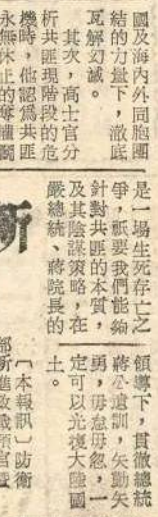 國及海內外同胞團
結的力量下，澈底
瓦解幻滅。
其次，高士官分
析共匪現階段的危
機時，他認為共匪
永無休止的奪權鬪
是一場生死存亡之
爭，祇要我們能夠
針對共匪的本質，
及其陰謀策略，在
嚴總統、蔣院長的
領導下，貫徹總統
蔣公遺訓，矢勤矢
勇，毋怠毋忽，一
定可以光復大陸國
土。
〔本報訊〕防衛